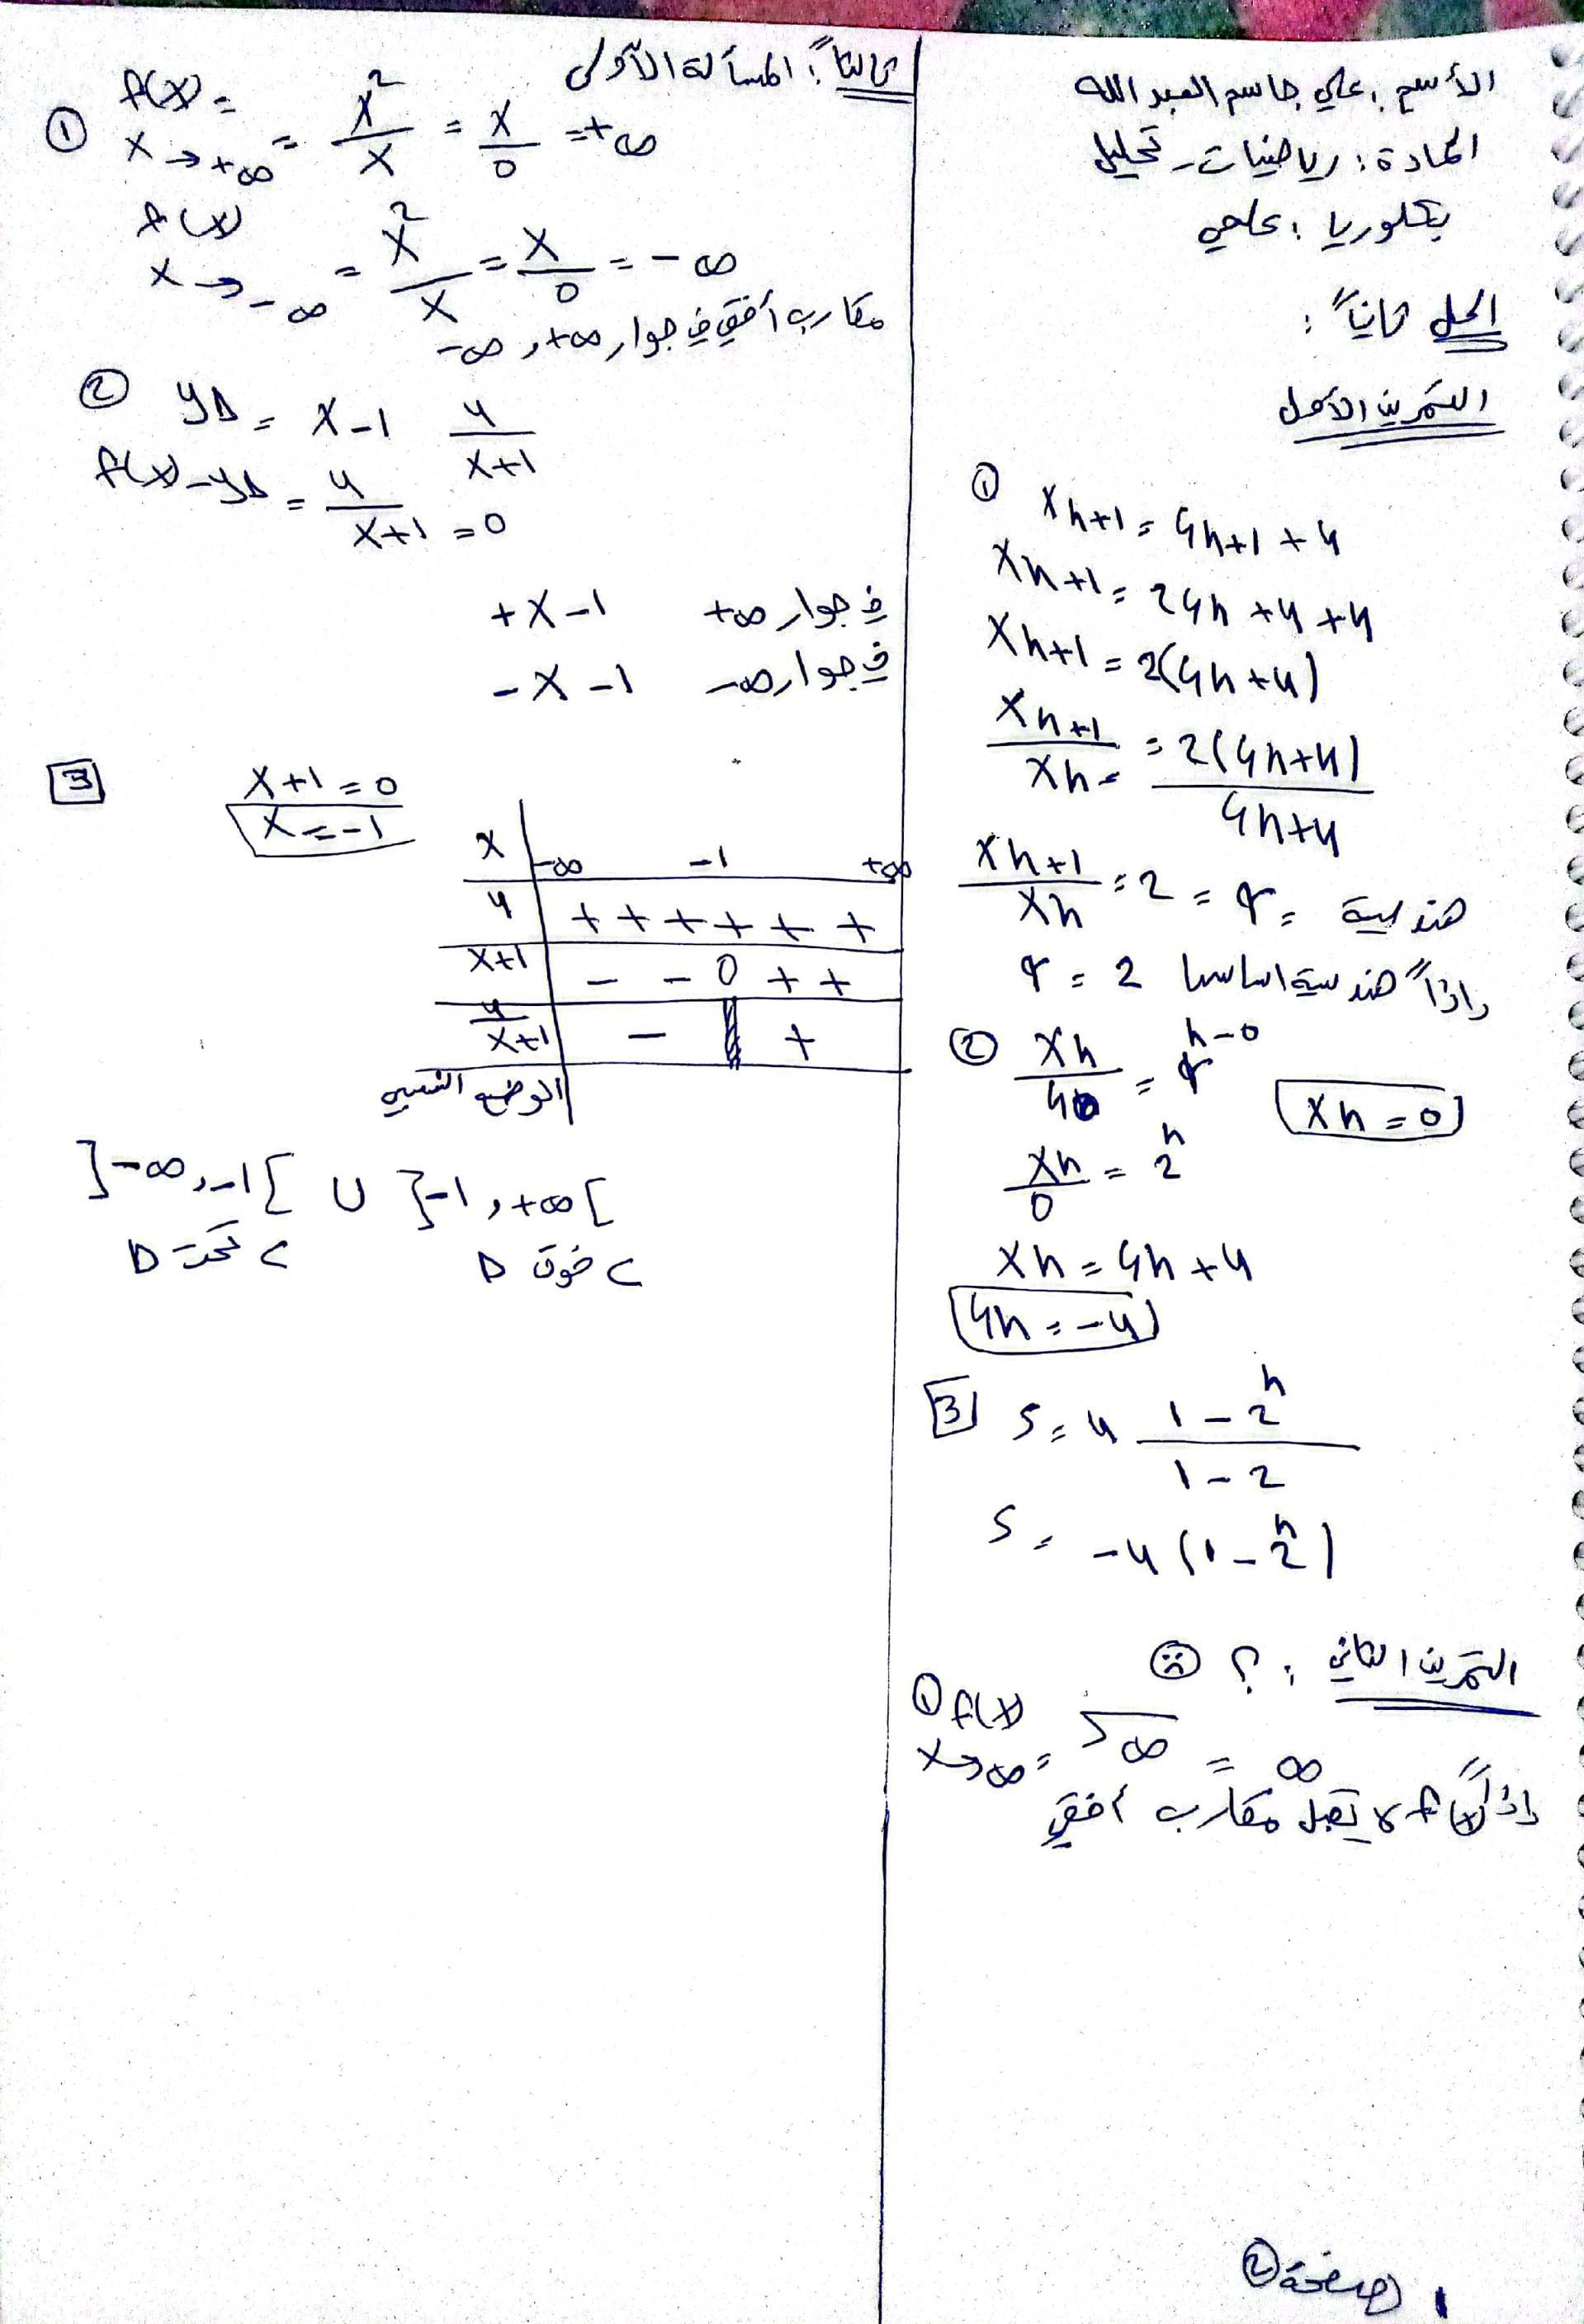 الأسم : علي جاسم العبد الله
المادة : رياضيات - تحليل
بكلوريا : علمي
الحل ثانياً :
التمرين الأول
① Xn+1 = 4n+1 + 4
Xn+1 = 24n + 4 + 4
Xn+1 = 2(4n+4)
Xn+1 / Xn = 2(4n+4) / 4n+4
Xn+1 / Xn = 2 = q = هندسية
إذاً هندسية اساسها q = 2
② Xn / 40 = q^n-0
Xn = 0
Xn / 0 = 2^n
Xn = 4n + 4
4n = -4
3 S = 4 1-2^n / 1-2
S = -4(1-2^n)
التمرين الثاني : ؟ ☹
① f(x) x→∞ = √∞ = ∞
إذاً f لا تقبل مقارب أفقي
ثالثاً : المسألة الأولى
① f(x) = x→+∞ = x² / x = x / 0 = +∞
f(x) x→-∞ = x² / x = x / 0 = -∞
مقارب أفقي في جوار +∞ , -∞
② yΔ = x-1 4 / x+1
f(x) - yΔ = 4 / x+1 = 0
+x-1 في جوار +∞
-x-1 في جوار -∞
3 x+1 = 0
x = -1
x -∞ -1 +∞
4 + + + + + +
x+1 - - 0 + +
4 / x+1 - +
الوضع النسبي
]-∞, -1[ ∪ ]-1, +∞[
C تحت Δ C فوق Δ
صفحة ②